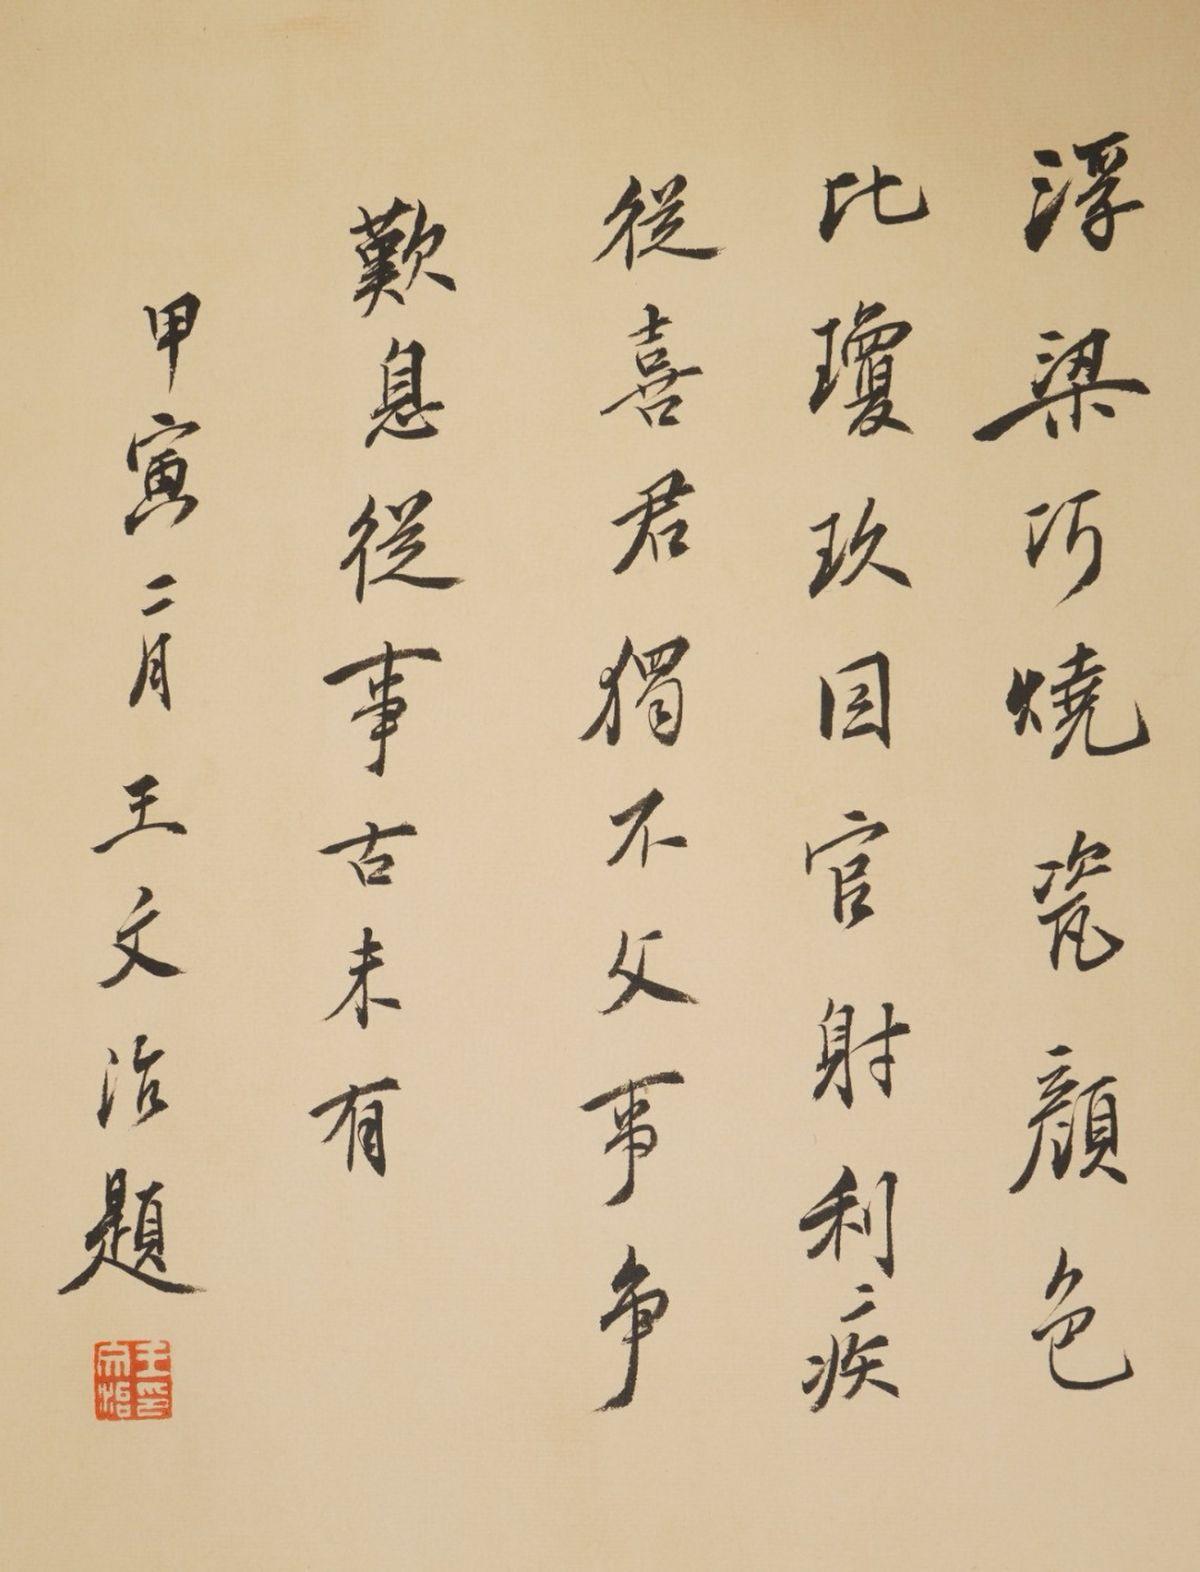 浮梁巧燒瓷顏色
比瓊玖因官射利疾
從喜君獨不父事争
歎息從事古未有
甲寅二月王文治題
王文治印